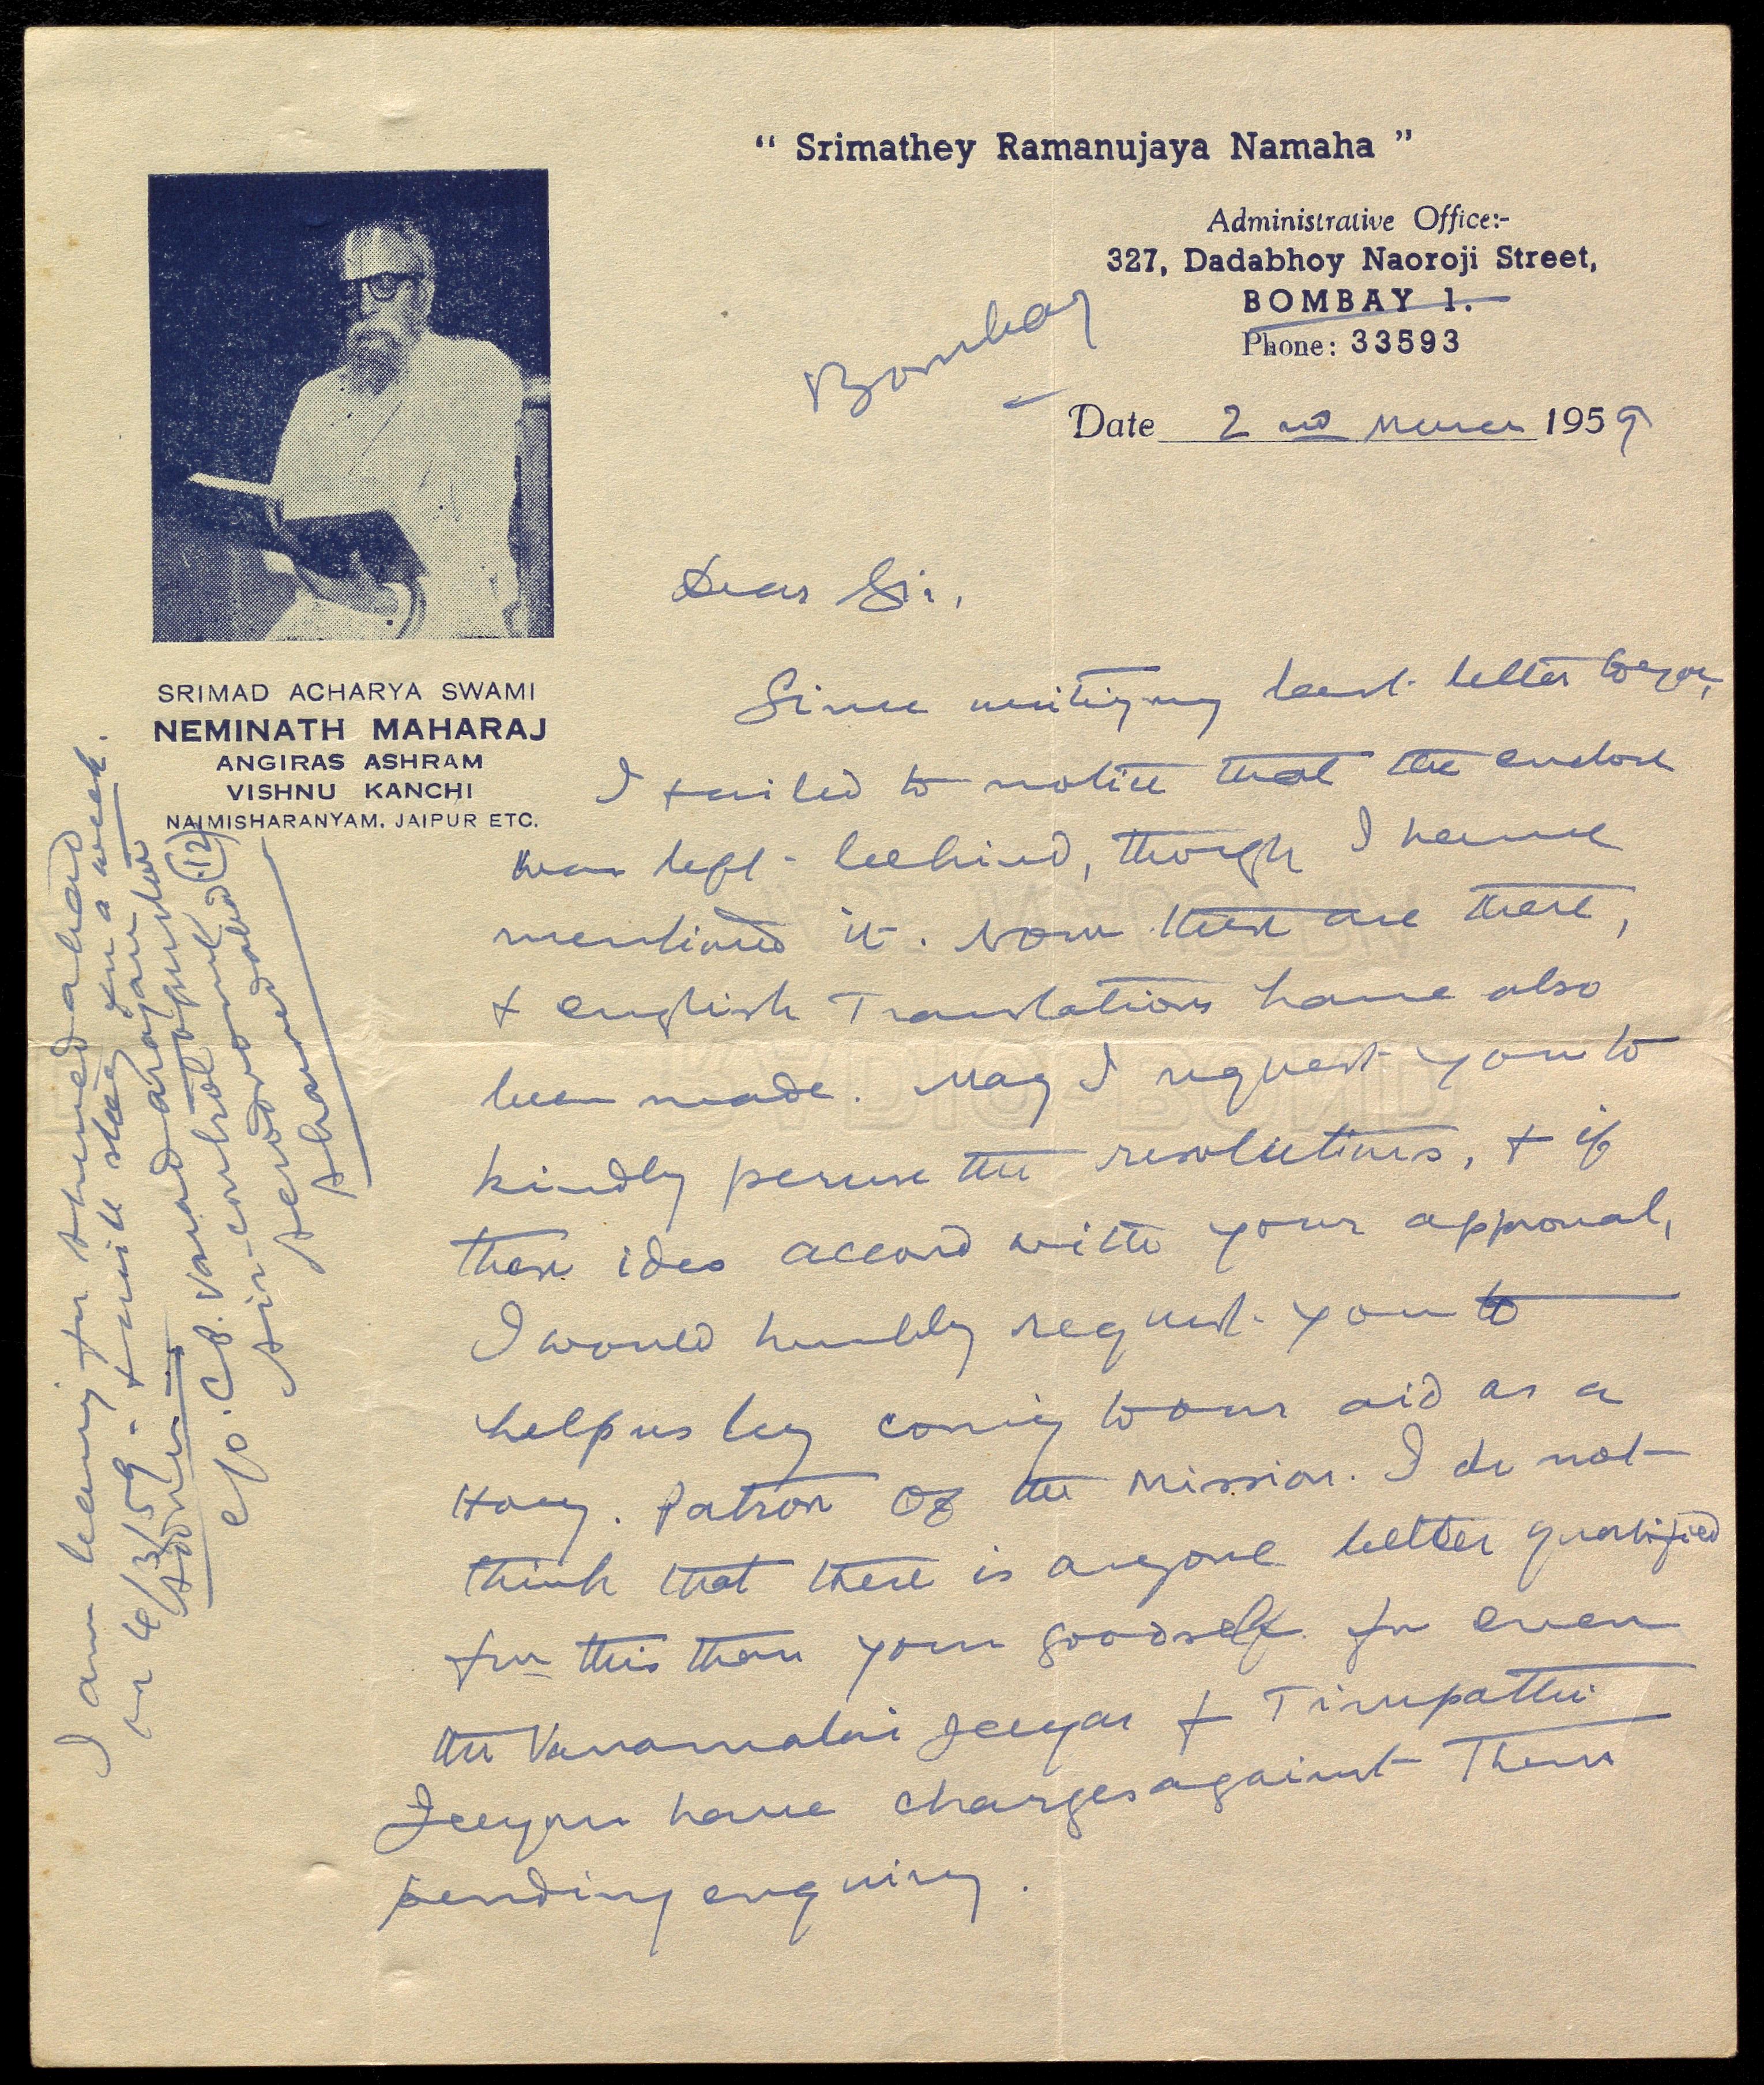 " Srimathey Ramanujaya Namaha "
Administrative Office:-
327, Dadabhoy Naoroji Street,
BOMBAY 1.
Phone: 33593
Bombay
Date 2nd March 1959
SRIMAD ACHARYA SWAMI
NEMINATH MAHARAJ
ANGIRAS ASHRAM
VISHNU KANCHI
NAIMISHARANYAM, JAIPUR ETC.
Dear Sir,
Since writing my last letter to you,
I failed to notice that the enclose
was left behind, though I have
mentioned it. Now these are there,
& english Translations have also
been made. May I request you to
kindly peruse the resolutions, & if
these ideas accord with your approval,
I would humbly request you to
help us by coming to our aid as a
Hony. Patron of the Mission. I do not
think that there is anyone better qualified
for this than your goodself. for even
the Vanamalai Jeeyar & Tirupathi
Jeeyar have charges against Them
pending enquiry.
I am leaving for Ahmedabad
on 4/3/59. & will stay for a week.
Address
c/o. C.B. Varadarajan
Air-control
Aerodrome
(12)